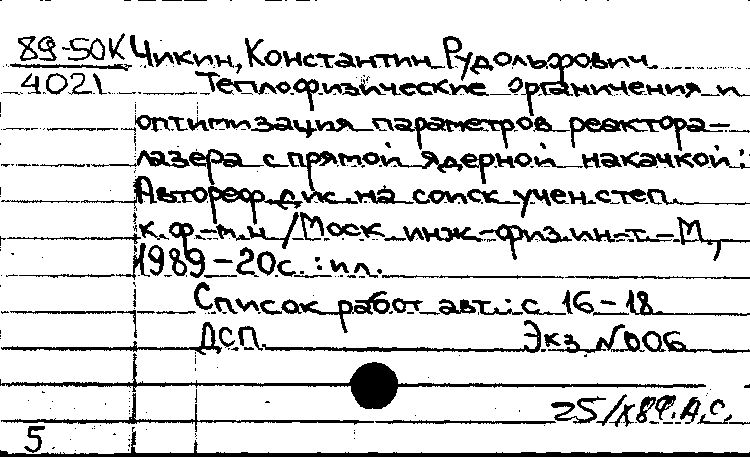 89-50К Чикин, Константин Рудольфович.
4021 Теплофизические органичения и
оптимизация параметров реактора-
лазера с прямой ядерной накачкой:
Автореф. дис. на соиск учен. степ.
к. ф.-м. н /Моск. инж-физ. ин-т. - М.,
1989 - 20с. : ил.
Список работ авт.: с. 16-18.
ДСП. Экз. №006
25/X89. А.С.
5